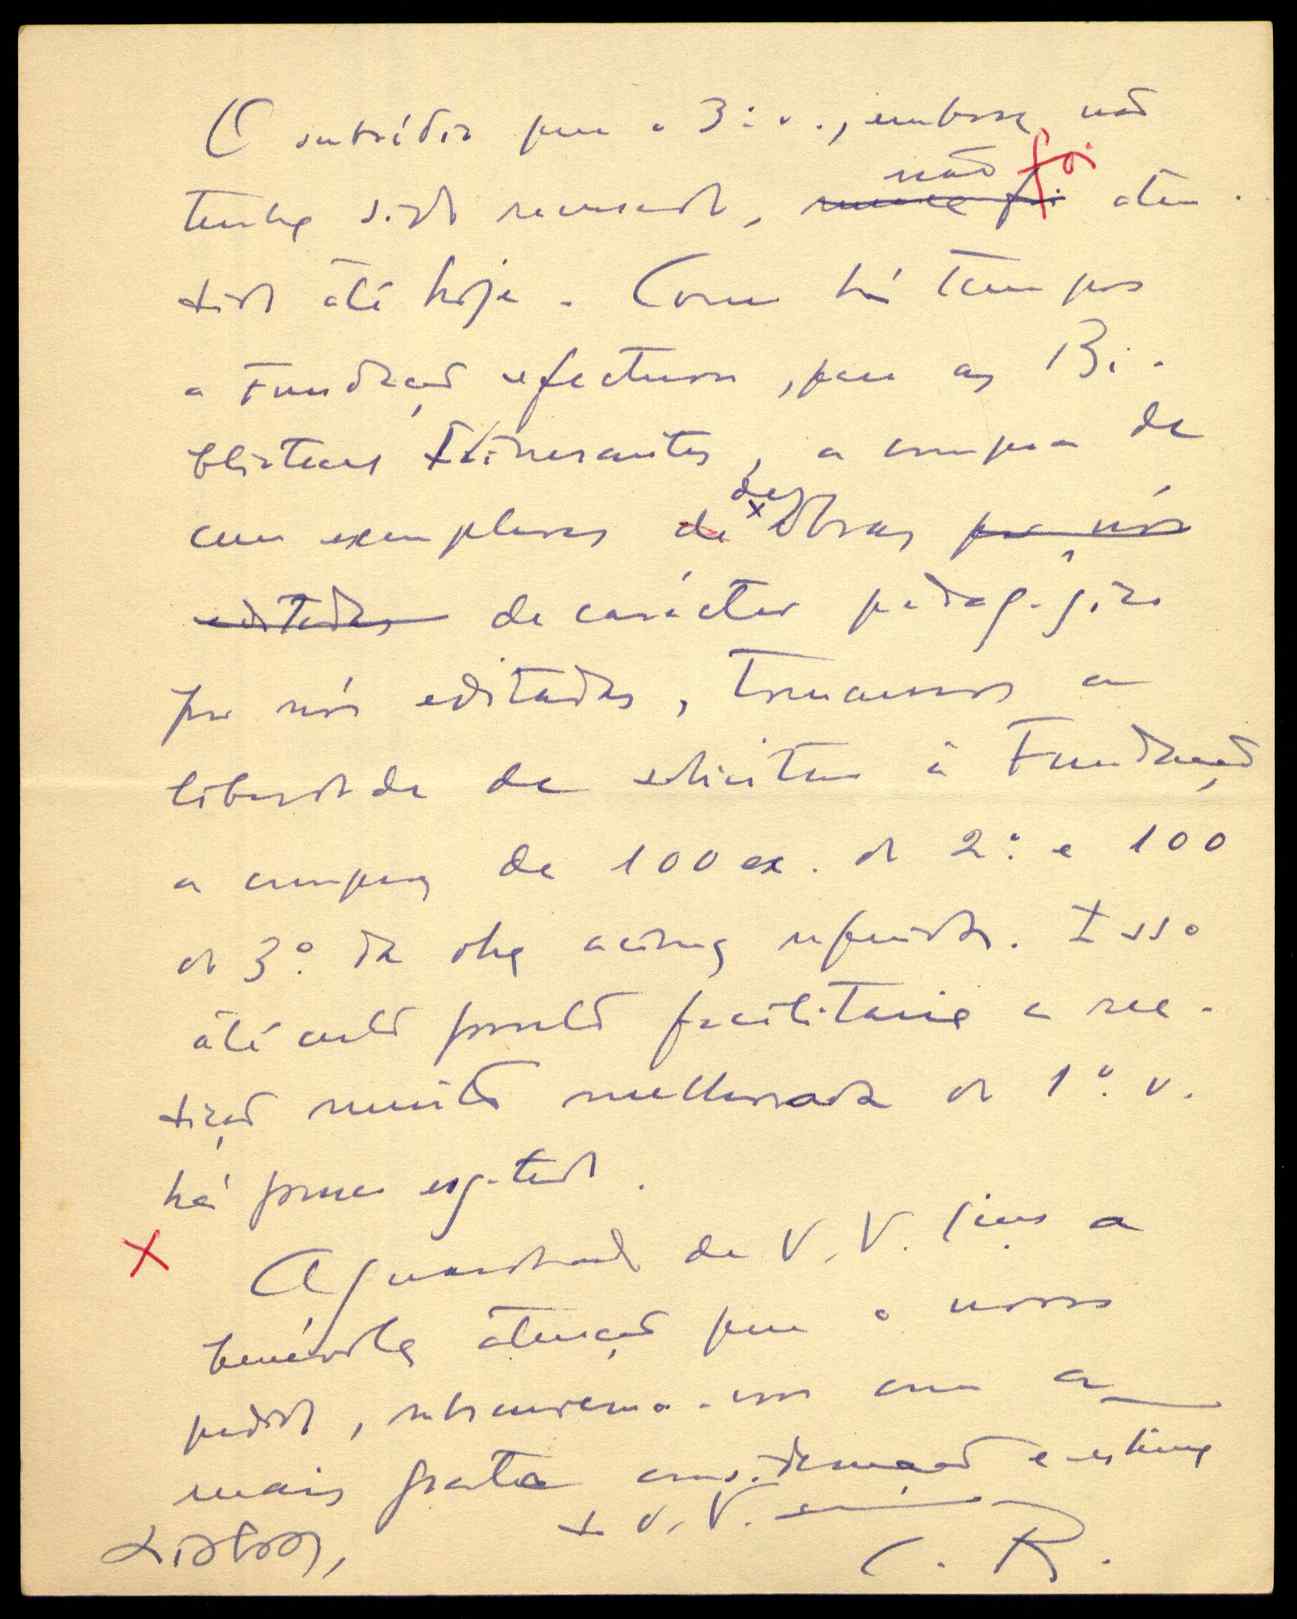 O subsídio para o 3.º v., embora não
tenha sido recusado, não foi aten-
dido até hoje. Como há tempos
a Fundação efectuou, para as Bi-
bliotecas Itinerantes, a compra de
cem exemplares de obras por nós
editadas de carácter pedagógico
por nós editadas, tomamos a
liberdade de solicitar à Fundação
a compra de 100 ex. do 2.º e 100
do 3.º da obra acima referida. Isso
até certo ponto facilitaria a ree-
dição muito melhorada do 1.º v.
há pouco esgotado.
Aguardando de V. V. a
benévola atenção para o nosso
pedido, subscrevemo-nos com a
mais grata consideração e estima
V. V.
Lisboa, C. R.